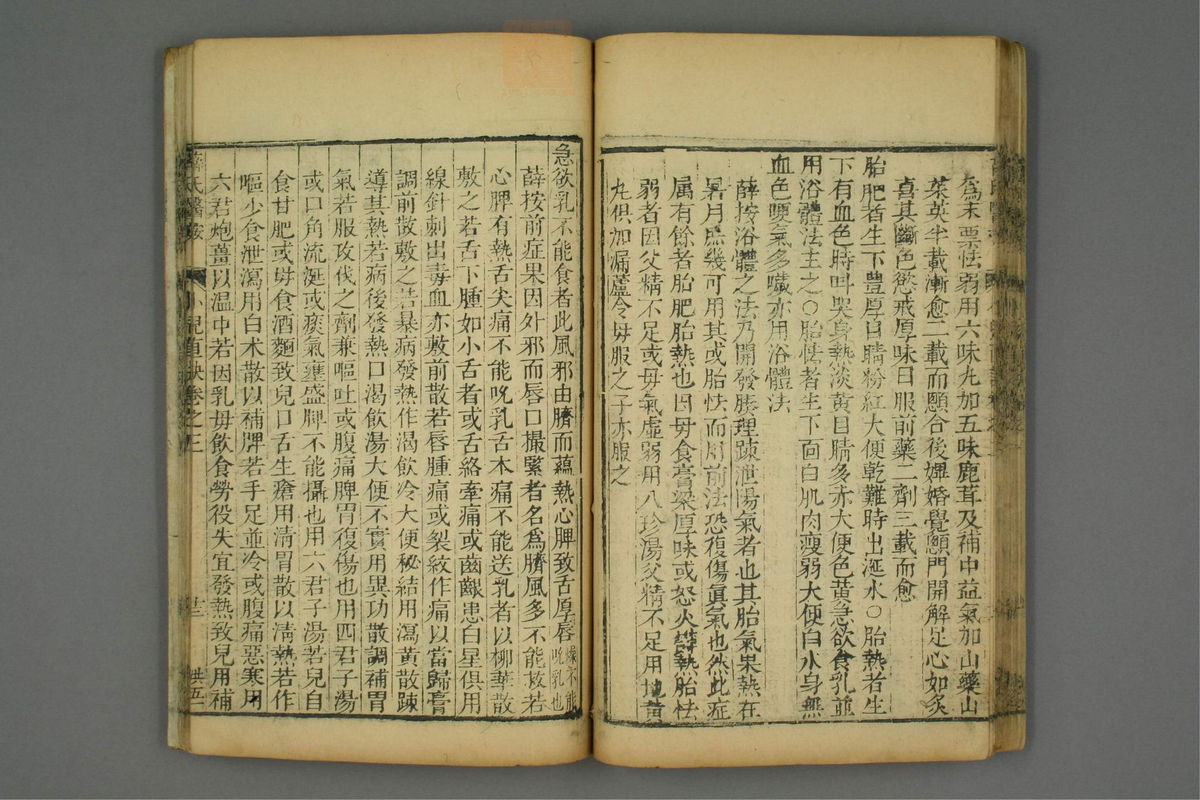 爲末棗怯弱用六味丸加五味鹿茸及補中益氣加山藥山
茱萸半載漸愈二載而顖合後嬅婚覺顖門開解足心如炙
喜其斷色慾戒厚味日服前藥二劑三載而愈
胎肥者生下豐厚目睛粉紅大便乾難時出涎水○胎熱者生
下有血色時叫哭身熱淡黄目睛多赤大便色黄急欲食乳並
用浴體法主之○胎怯者生下面白肌肉瘦弱大便白水身無
血色哽氣多噦亦用浴體法
薛按浴體之法乃開發腠理疎泄陽氣者也其胎氣果熱在
暑月庶幾可用其或胎怯而用前法恐復傷眞氣也然此症
屬有餘者胎肥胎熱也因母食膏粱厚味或怒火等熱胎怯
弱者因父精不足或母氣虛弱用八珍湯父精不足用地黄
丸俱加漏蘆令母服之子亦服之
急欲乳不能食者此風邪由臍而蘊熱心脾致舌厚唇燥不能吮乳也
薛按前症果因外邪而唇口撮緊者名爲臍風多不能救若
心脾有熱舌尖痛不能吮乳舌本痛不能送乳者以柳華散
敷之若舌下腫如小舌者或舌絡牽痛或齒齦患白星俱用
線針刺出毒血亦敷前散若唇腫痛或裂紋作痛以當歸膏
調前散敷之若暴病發熱作渴飲冷大便秘結用瀉黄散疎
導其熱若病後發熱口渴飲湯大便不實用異功散調補胃
氣若服攻伐之劑兼嘔吐或腹痛脾胃復傷也用四君子湯
或口角流涎或痰氣壅盛脾不能攝也用六君子湯若兒自
食甘肥或母食酒麵致兒口舌生瘡用清胃散以清熱若作
嘔少食泄瀉用白术散以補脾若手足並冷或腹痛惡寒用
六君炮薑以温中若因乳母飲食勞役失宜發熱致兒用補
薛氏醫案 小兒直訣卷之三